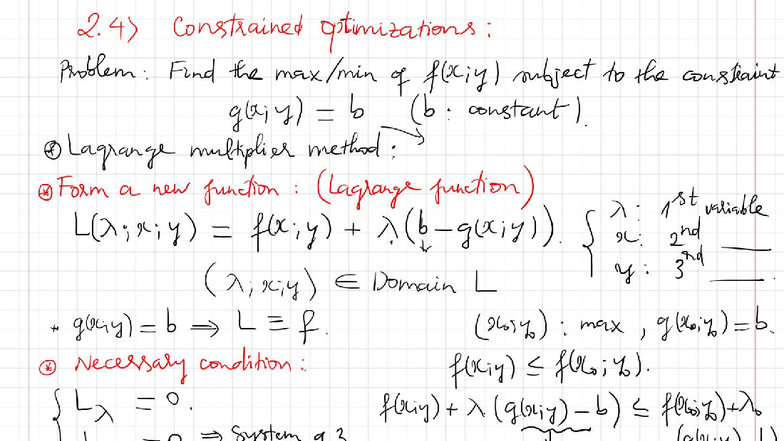 2.4) Constrained optimizations:
Problem: Find the max/min of f(x;y) subject to the constraint
g(x;y) = b (b: constant).
⊛ Lagrange multiplier method:
⊛ Form a new function: (Lagrange function)
L(λ;x;y) = f(x;y) + λ(b - g(x;y)).
λ: 1st variable
x: 2nd ____
y: 3rd ____
(λ;x;y) ∈ Domain L
* g(x;y) = b ⇒ L ≡ f.
(x₀;y₀): max, g(x₀;y₀) = b.
⊛ Necessary condition:
f(x;y) ≤ f(x₀;y₀).
{ Lλ = 0.
f(x;y) + λ(g(x;y) - b) ≤ f(x₀;y₀) + λ₀
= 0 ⇒ System of 3